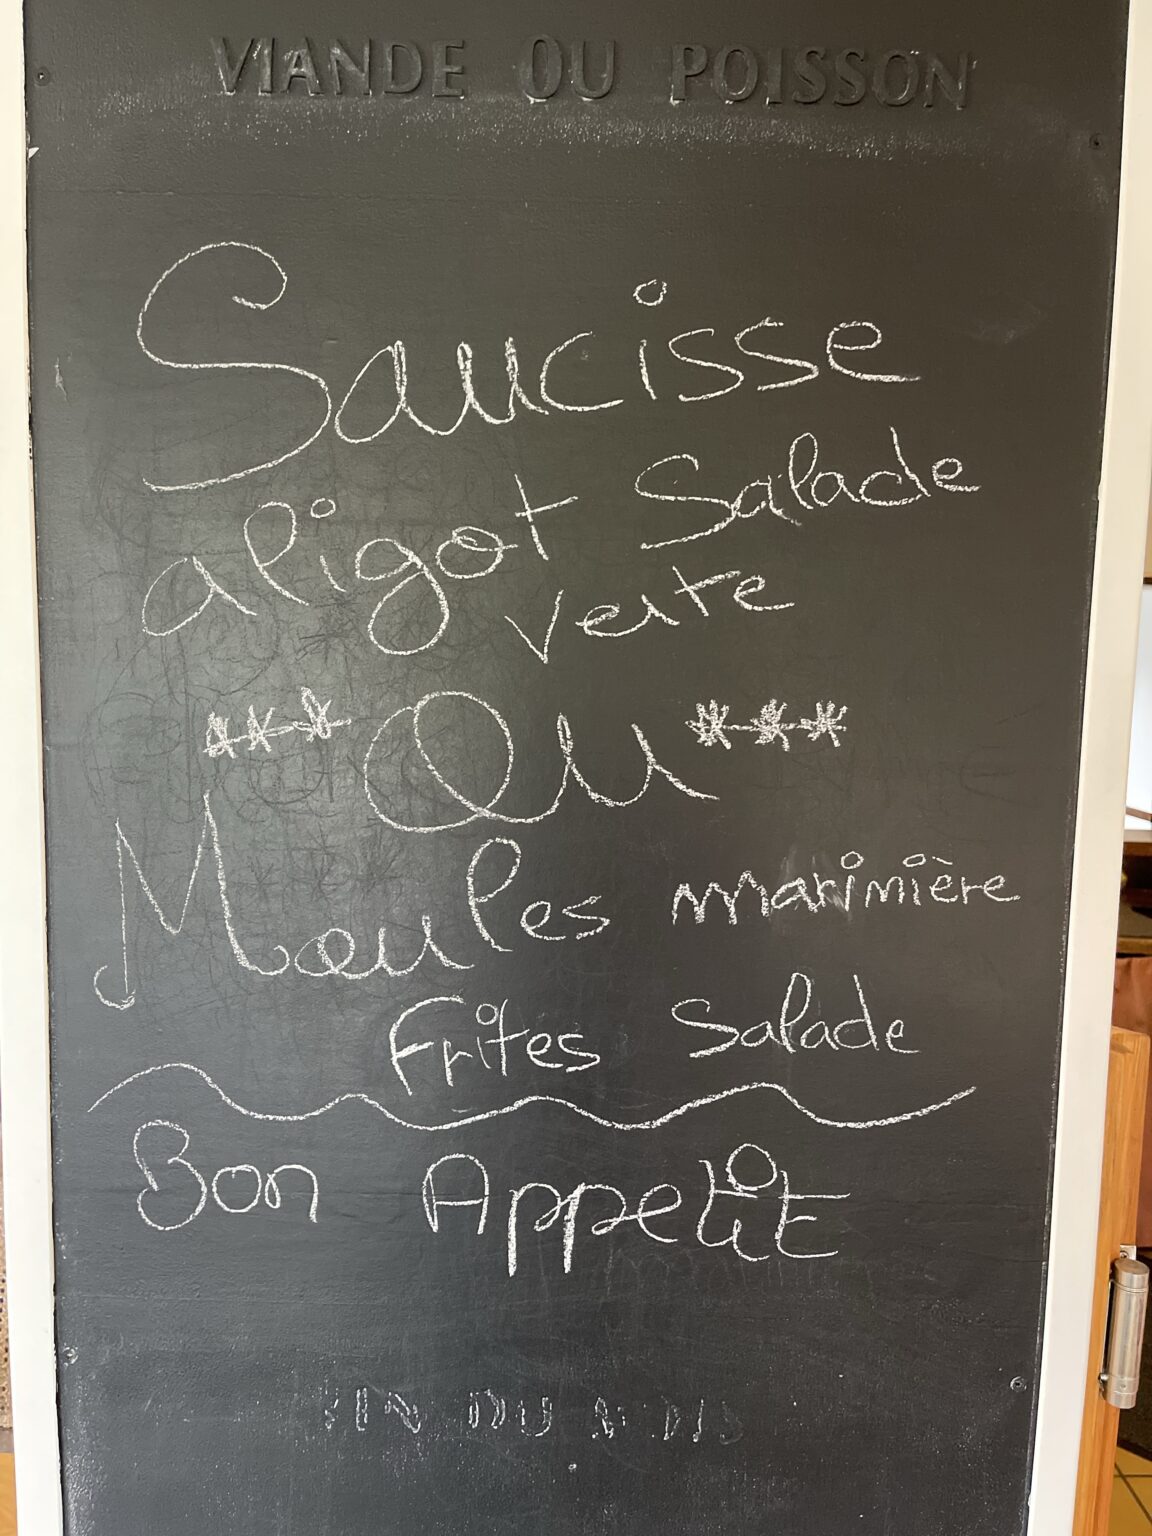 VIANDE OU POISSON
Saucisse
aligot Salade
verte
*** Ou ***
Moules marinière
Frites Salade
Bon Appetît
VIN DU MOIS